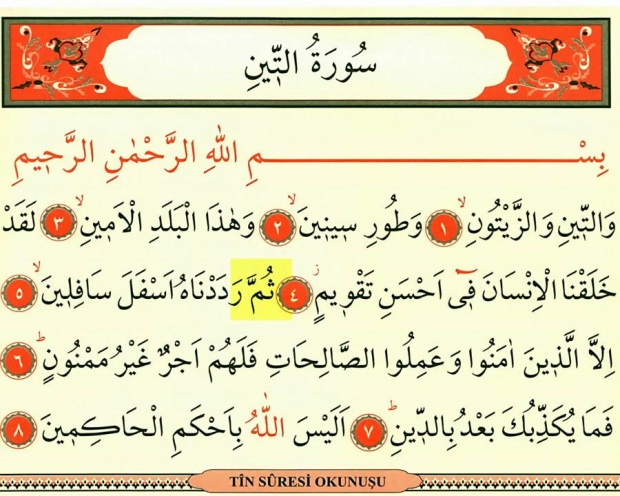 سُورَةُ التّ۪ينِ
بِسْــــــــــــــــــمِ اللّٰهِ الرَّحْمٰنِ الرَّح۪يمِ
وَالتّ۪ينِ وَالزَّيْتُونِۙ ﴿١﴾ وَطُورِ س۪ين۪ينَۙ ﴿٢﴾ وَهٰذَا الْبَلَدِ الْاَم۪ينِۙ ﴿٣﴾ لَقَدْ
خَلَقْنَا الْاِنْسَانَ ف۪ٓي اَحْسَنِ تَقْو۪يمٍۘ ﴿٤﴾ ثُمَّ رَدَدْنَاهُ اَسْفَلَ سَافِل۪ينَۙ ﴿٥﴾
اِلَّا الَّذ۪ينَ اٰمَنُوا وَعَمِلُوا الصَّالِحَاتِ فَلَهُمْ اَجْرٌ غَيْرُ مَمْنُونٍۜ ﴿٦﴾
فَمَا يُكَذِّبُكَ بَعْدُ بِالدّ۪ينِۜ ﴿٧﴾ اَلَيْسَ اللّٰهُ بِاَحْكَمِ الْحَاكِم۪ينَ ﴿٨﴾
TÎN SÛRESİ OKUNUŞU